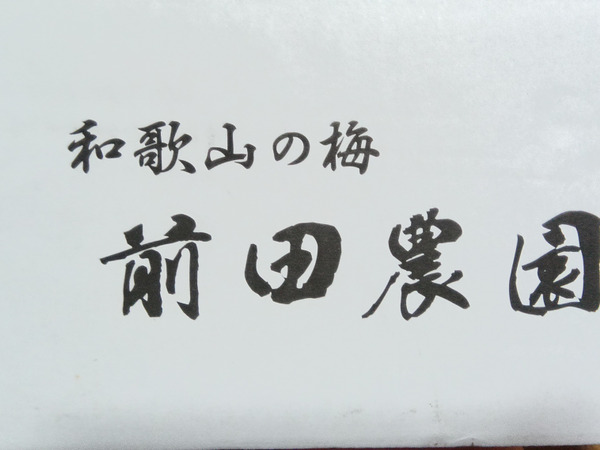 和歌山の梅
前田農園